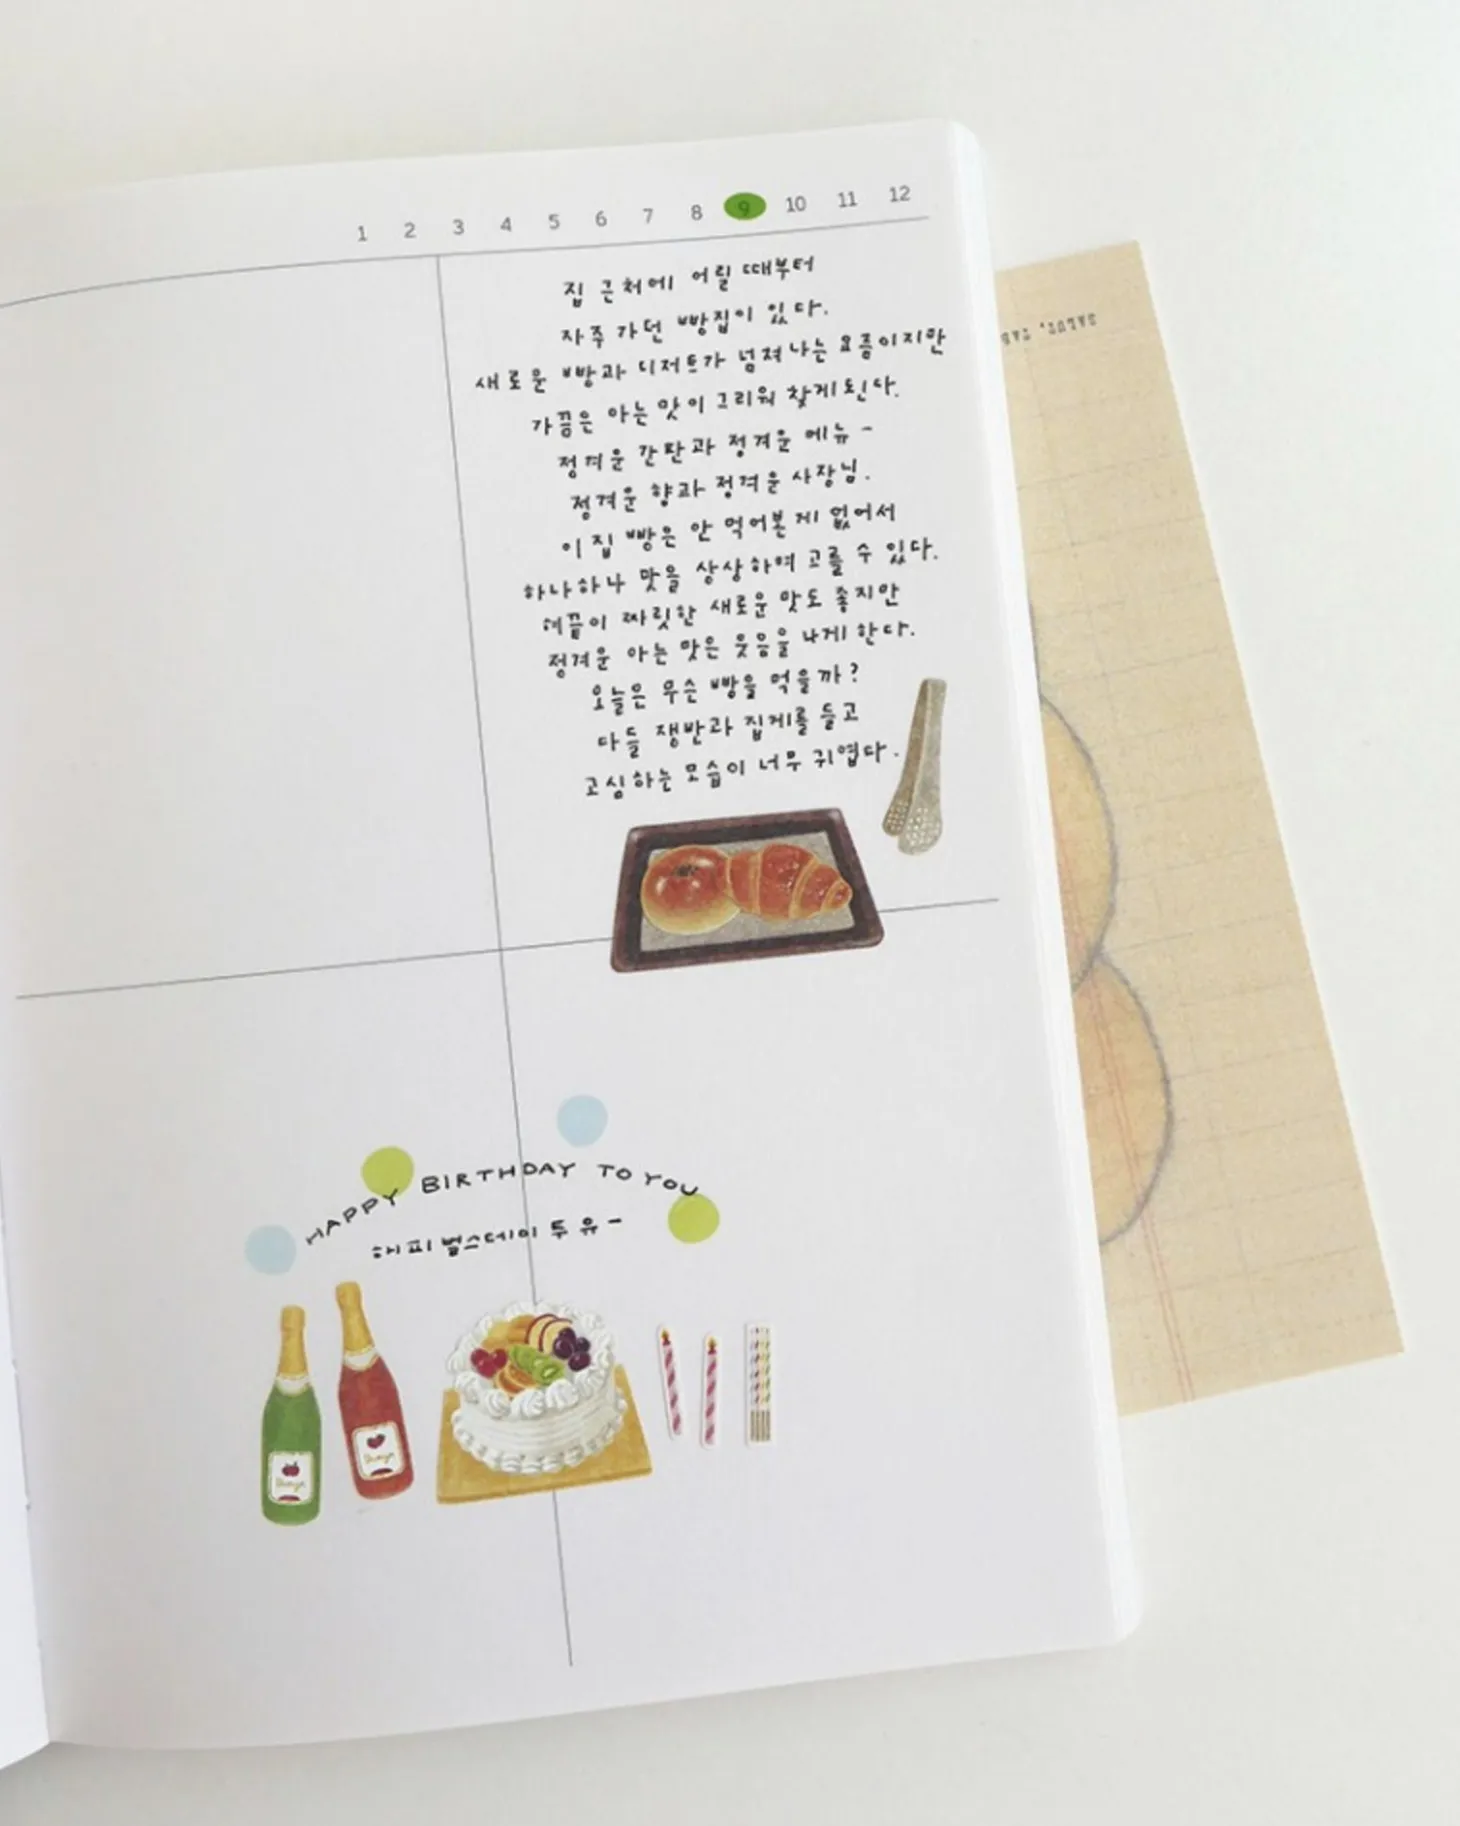 1 2 3 4 5 6 7 8 9 10 11 12
집 근처에 어릴 때부터
자주 가던 빵집이 있다.
새로운 빵과 디저트가 넘쳐나는 요즘이지만
가끔은 아는 맛이 그리워 찾게된다.
정겨운 간판과 정겨운 메뉴-
정겨운 향과 정겨운 사장님.
이 집 빵은 안 먹어본 게 없어서
하나하나 맛을 상상하며 고를 수 있다.
혀끝이 짜릿한 새로운 맛도 좋지만
정겨운 아는 맛은 웃음을 나게 한다.
오늘은 무슨 빵을 먹을까?
다들 쟁반과 집게를 들고
고심하는 모습이 너무 귀엽다.
HAPPY BIRTHDAY TO YOU
해피 벌스데이 투 유-